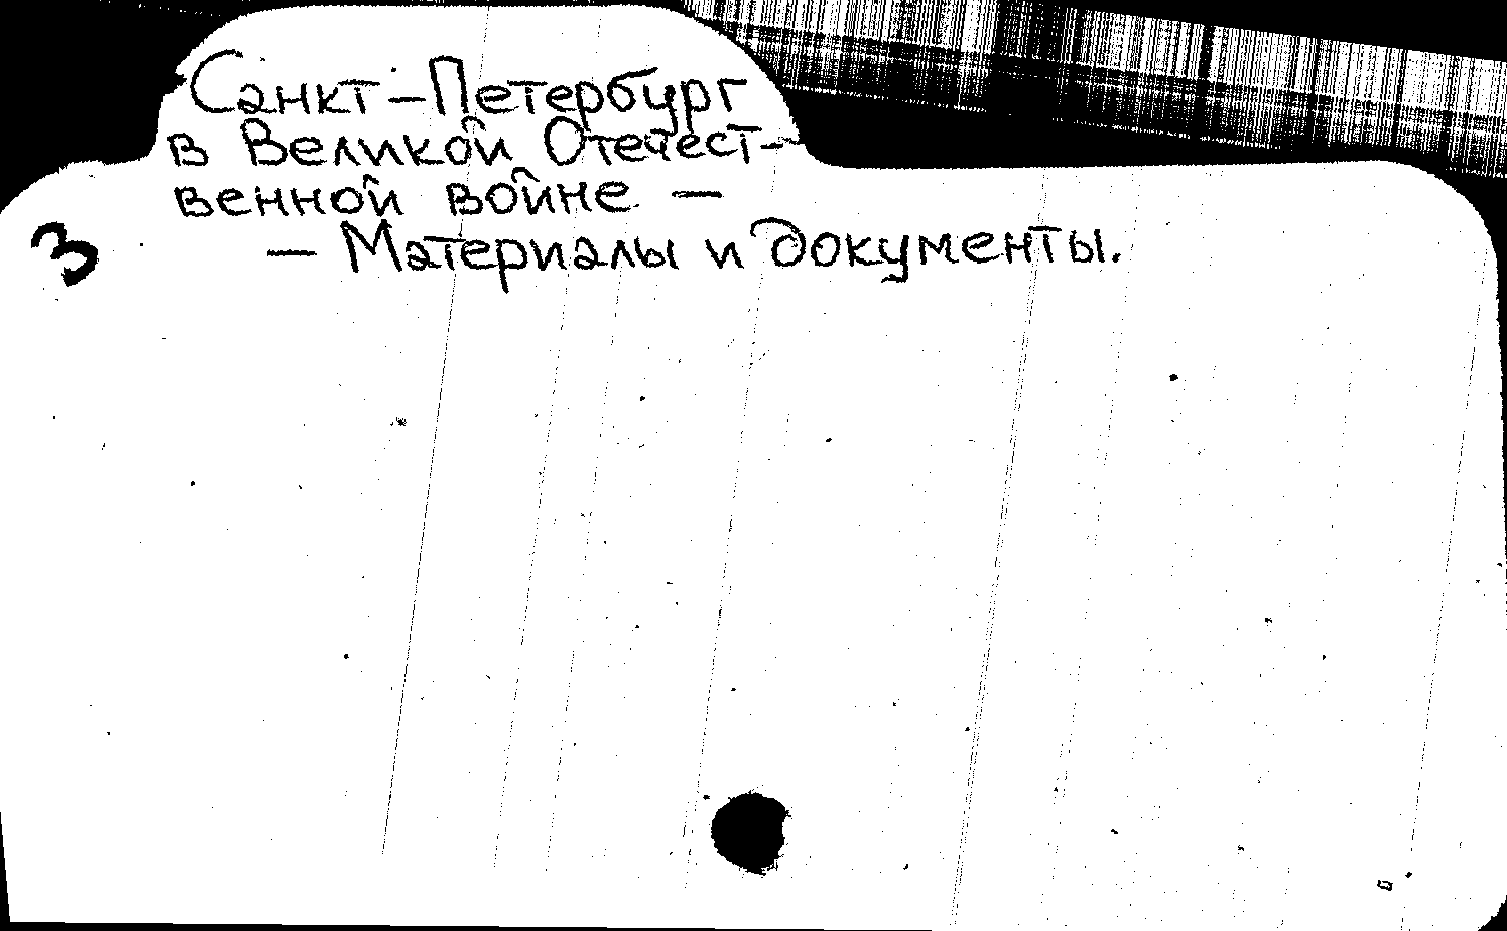 Санкт-Петербург
в Великой Отечест-
венной войне —
3 — Материалы и документы.